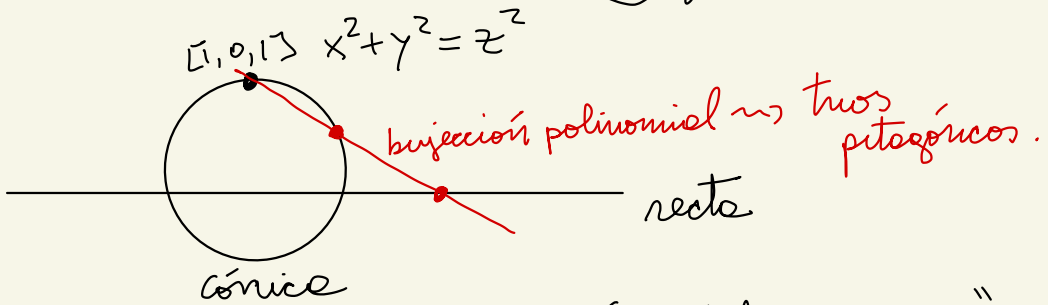 [1,0,1] x²+y²=z²
bijección polinomial ⇝ tríos
pitagóricos.
recta
cónica